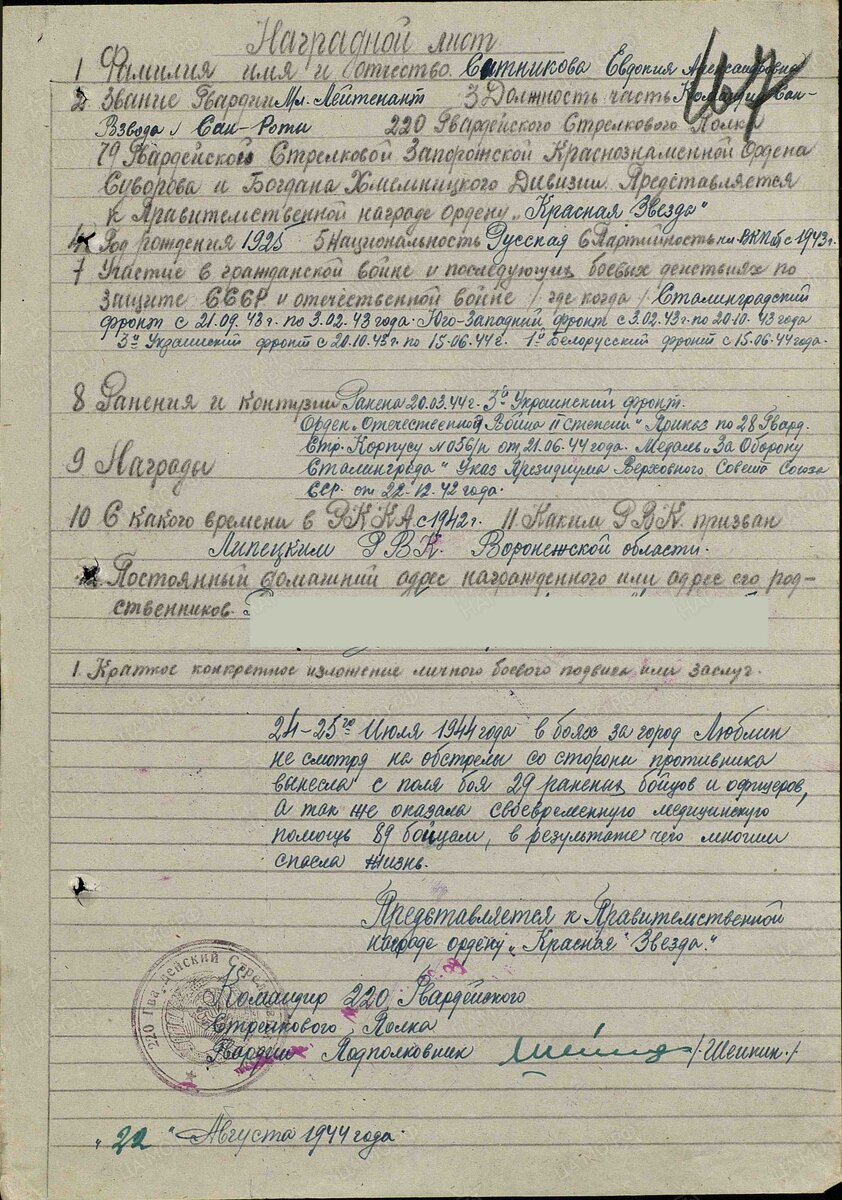 Наградной лист
1 Фамилия имя и отчество Ситникова Евдокия Александровна
2 Звание Гвардии Мл. Лейтенант 3 Должность часть Командир Сан-
Взвода / Сан-Роты 220 Гвардейского Стрелкового Полка
79 Гвардейской Стрелковой Запорожской Краснознаменной Ордена
Суворова и Богдана Хмельницкого Дивизии. Представляется
к Правительственной награде ордену „Красная Звезда"
4 Год рождения 1925 5 Национальность Русская 6 Партийность чл. ВКПб с 1943г.
7 Участие в гражданской войне и последующих боевых действиях по
защите СССР и отечественной войне / где когда / Сталинградский
фронт с 21.09.43г. по 3.02.43 года. Юго-Западный фронт с 3.02.43г. по 20.10.43 года
3й Украинский фронт с 20.10.43г. по 15.06.44г. 1й Белорусский фронт с 15.06.44 года.
8 Ранения и контузии Ранена 20.03.44г. 3й Украинский фронт.
Орден „Отечественной Война II степени" Приказ по 28 Гвард.
Стр. Корпусу №056/н от 21.06.44 года. Медаль „За Оборону
9 Награды Сталинграда" Указ Президиума Верховного Совета Союза
ССР от 22.12.42 года.
10 С какого времени в РККА с 1942г. 11 Каким РВК призван
Липецким РВК. Воронежской области.
12 Постоянный домашний адрес награжденного или адрес его род-
ственников.
1. Краткое конкретное изложение личного боевого подвига или заслуг.
24-25го Июля 1944 года в боях за город Люблин
не смотря на обстрелы со стороны противника
вынесла с поля боя 29 раненых бойцов и офицеров,
а так же оказала своевременную медицинскую
помощь 89 бойцам, в результате чего многим
спасла жизнь.
Представляется к Правительственной
награде ордену „Красная Звезда."
220 Гвардейский Стрелковый
Командир 220 Гвардейского
Стрелкового Полка
Гвардии Подполковник /Шейкин./
„22" Августа 1944 года.